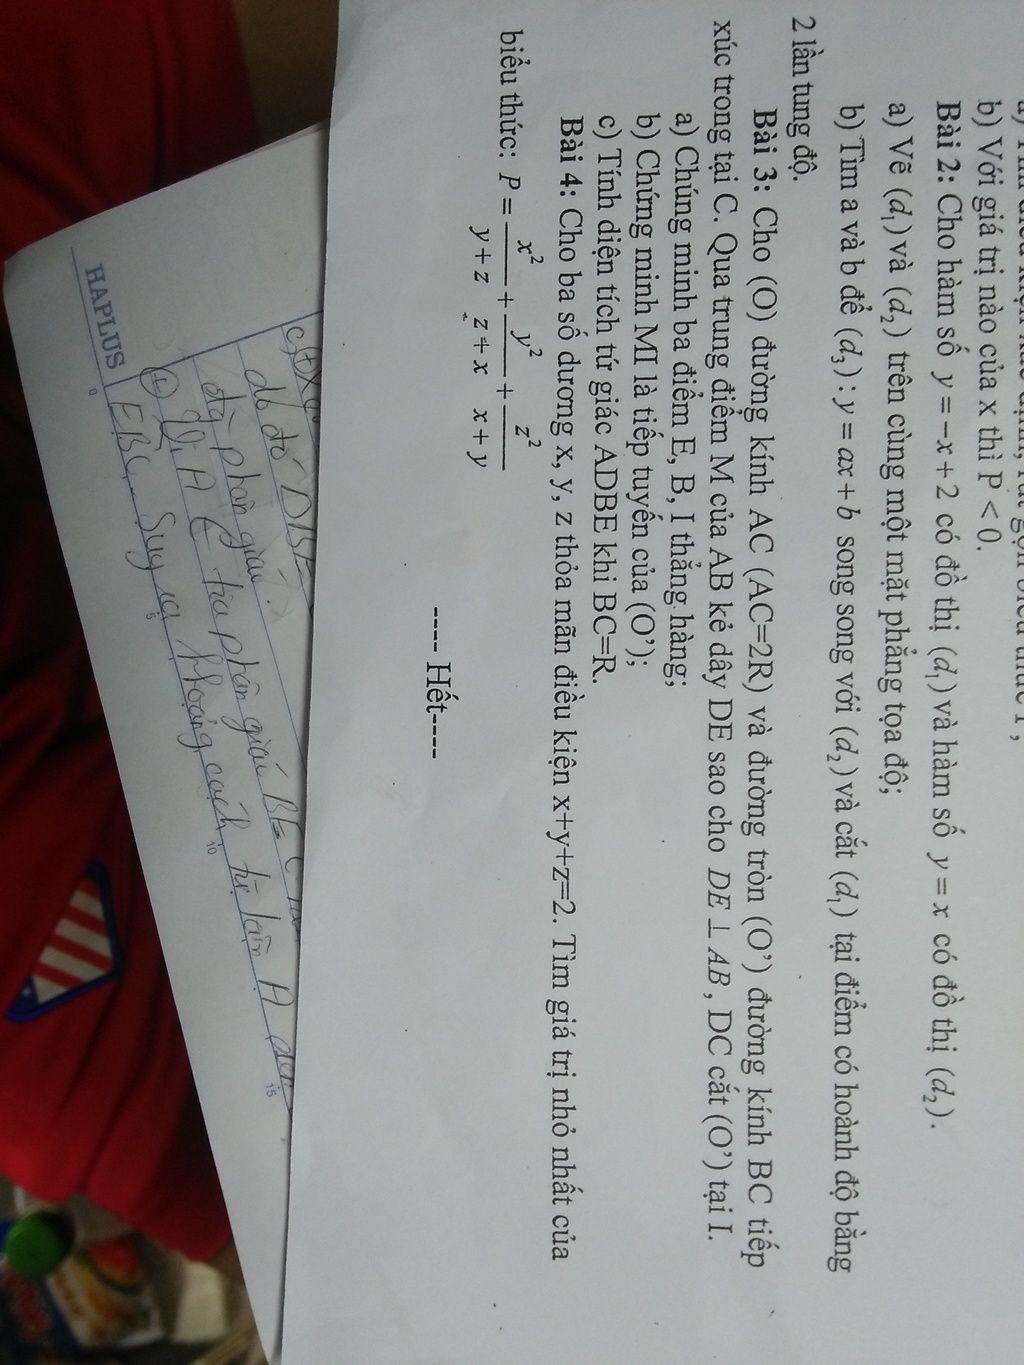 b) Với giá trị nào của x thì P < 0.
Bài 2: Cho hàm số y = −x + 2 có đồ thị (d₁) và hàm số y = x có đồ thị (d₂).
a) Vẽ (d₁) và (d₂) trên cùng một mặt phẳng tọa độ;
b) Tìm a và b để (d₃) : y = ax + b song song với (d₂) và cắt (d₁) tại điểm có hoành độ bằng
2 lần tung độ.
Bài 3: Cho (O) đường kính AC (AC=2R) và đường tròn (O') đường kính BC tiếp
xúc trong tại C. Qua trung điểm M của AB kẻ dây DE sao cho DE ⊥ AB, DC cắt (O') tại I.
a) Chúng minh ba điểm E, B, I thẳng hàng;
b) Chứng minh MI là tiếp tuyến của (O');
c) Tính diện tích tứ giác ADBE khi BC=R.
Bài 4: Cho ba số dương x, y, z thỏa mãn điều kiện x+y+z=2. Tìm giá trị nhỏ nhất của
biểu thức: P = x²/(y + z) + y²/(z + x) + z²/(x + y)
----- Hết----
do đó
phân giác
Vì A ∈ tia phân giác
EBC. Suy ra khoảng cách từ tâm A đến
HAPLUS
0 5 10 15